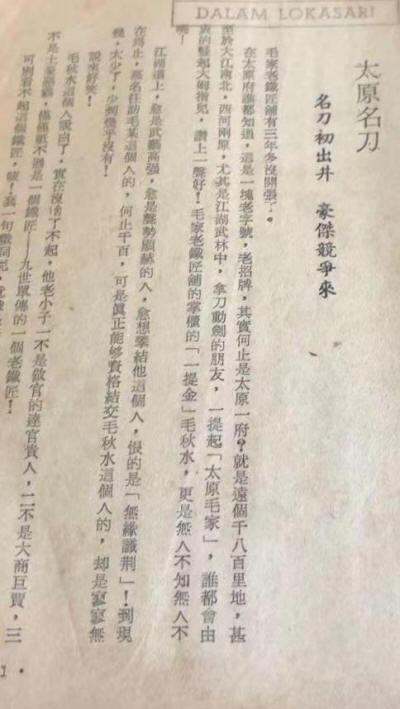 DALAM LOKASARI
太原名刀
名刀初出井　豪傑競爭來
毛家老鐵匠舖有三年多沒開張了。
在太原府誰都知道，這是一塊老字號，老招牌，其實何止是太原一府？就是遠個千八百里地，甚
至於大江南北，西河兩原，尤其是江湖武林中，拿刀動劍的朋友，一提起「太原毛家」，誰都會由
衷的豎起大姆指兒，讚上一聲好！毛家老鐵匠舖的掌櫃的「一提金」毛秋水，更是無人不知無人不
曉—
江湖道上，愈是武藝高強，愈是聲勢顯赫的人，愈想攀結他這個人，恨的是「無緣識荊」！到現
在為止，慕名往訪毛某這個人的，何止千百，可是真正能够資格結交毛秋水這個人的，却是寥寥無
幾，太少了，少到幾乎沒有！
說來好笑！
毛秋水這個人說起了，實在沒啥了不起，他老小子一不是做官的達官貴人，二不是大商巨賈，三
不是土豪惡霸，僅僅祇不過是一個鐵匠—九世單傳的一個老鐵匠！
可別看不起這個鐵匠，嗳！我一句
1